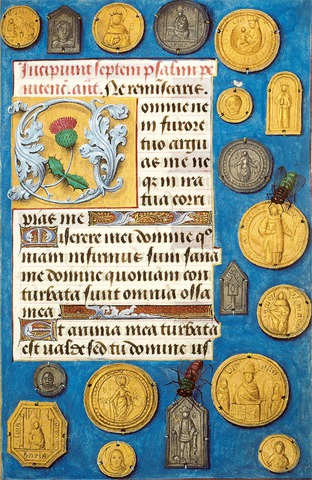 Incipiunt septem psalmi pe
nitenc̄. ant̄. Ne reminiscaris.
Domine ne
in furore
tuo argu
as me ne
qꝫ in ira
tua corri
pias me
Miserere mei domine qm̄
niam infirmus sum sana
me domine quoniam con
turbata sunt omnia ossa
mea
Et anima mea turbata
est valde sed tu domine us